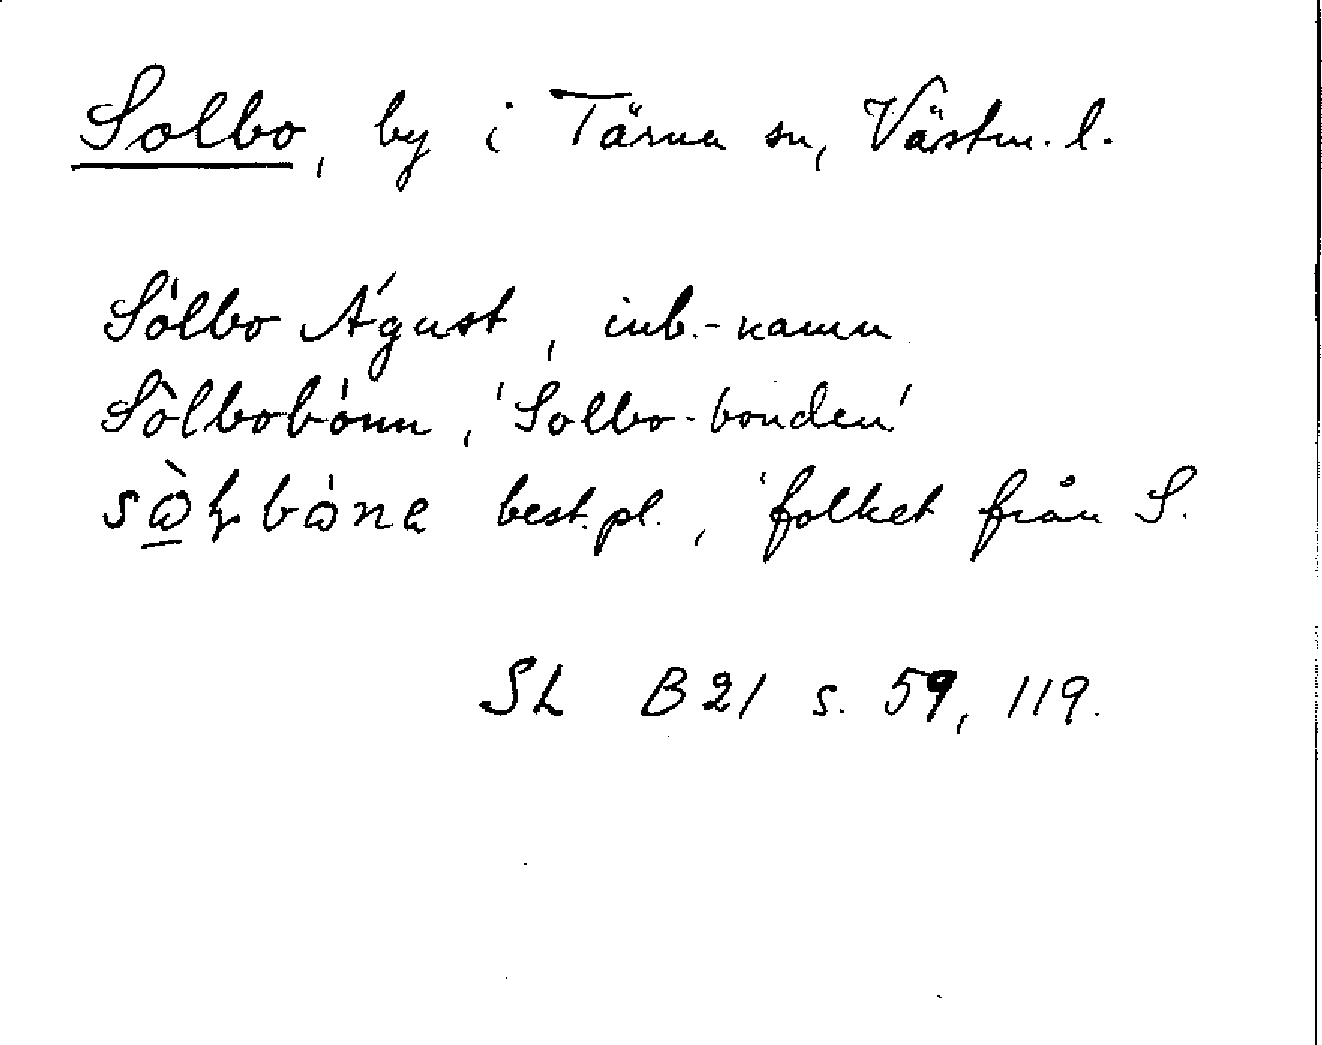 Solbo, by i Tärna sn, Västm. l.
Sólbo Águst, inb.-namn
Sòlbobónn, 'Solbo-bonden'
best.pl., 'folket från S.
SL B21 s. 59, 119.